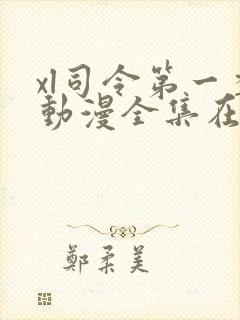 xl司令第一
動漫全集在
鄭柔美